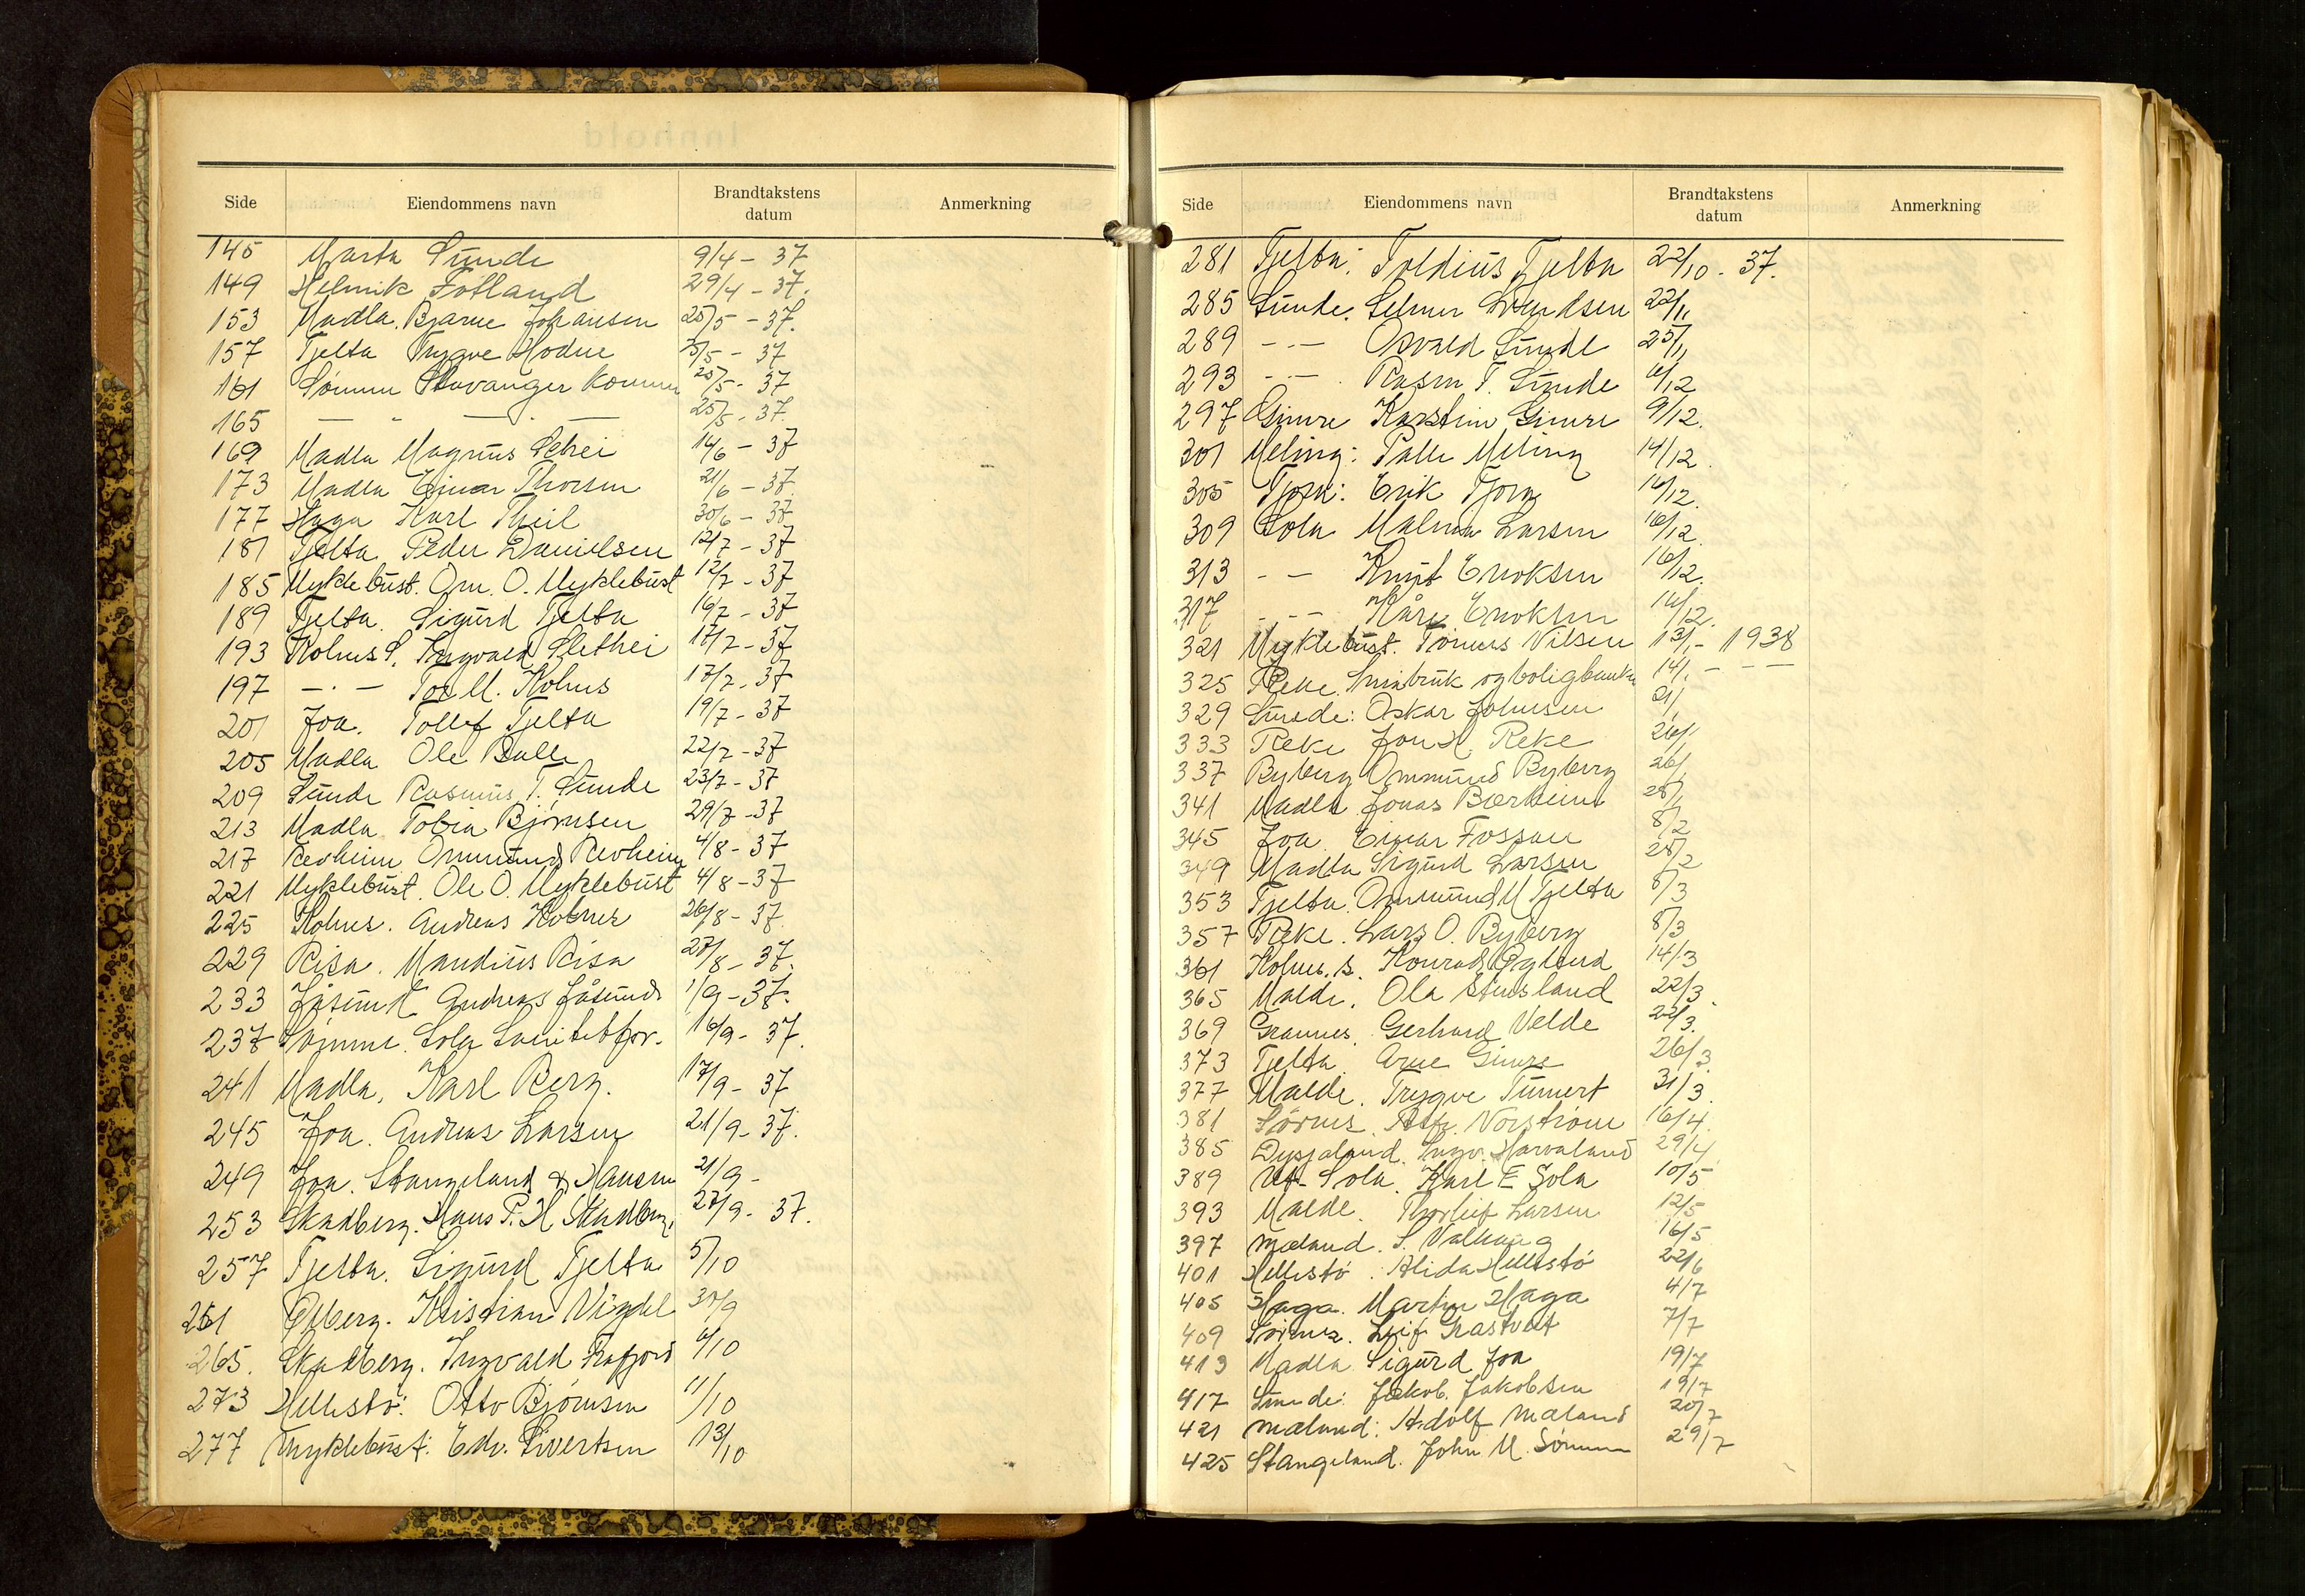 Side Eiendommens navn Brandtakstens datum Anmerkning
145 Marta Sunde 9/4 - 37
149 Helmik Fotland 29/4 - 37.
153 Madla. Bjarne Johansen 25/5 - 37.
157 Tjelta Trygve Hodne 25/5 - 37
161 Sømme Stavanger Kommun 25/5 - 37
165 — " — . — 25/5 - 37.
169 Madla Magnus Schei 14/6 - 37
173 Madla Einar Thorsen 21/6 - 37.
177 Haga Karl Theil 30/6 - 37
181 Tjelta Peder Danielsen 12/7 - 37
185 Myklebust. Om. O. Myklebust 12/7 - 37
189 Tjelta. Sigurd Tjelta 16/7 - 37
193 Kolnes S. Ingvald Slethei 17/7 - 37
197 — . — Tor M. Kolnes 17/7 - 37
201 Joa. Tollef Tjelta 19/7 - 37
205 Madla Ole Balle 22/7 - 37
209 Sunde Rasmus T. Sunde 23/7 - 37
213 Madla Tobia Bjørnsen 29/7 - 37
217 Revheim Ommund Revheim 4/8 - 37
221 Myklebust. Ole O. Myklebust 4/8 - 37
225 Kolnes. Andreas Kolnes 26/8 - 37.
229 Risa. Mandius Risa 27/8 - 37.
233 Jåsund Andreas Jåsund 1/9 - 37.
237 Sømme. Sola Sanitetsfor. 16/9 - 37.
241 Madla. Karl Berg. 17/9 - 37
245 Joa. Andreas Larsen 21/9 - 37.
249 Joa. Stangeland & Hansen 21/9 -
253 Skadberg. Hans P. H Skadberg. 27/9 - 37.
257 Tjelta. Sigurd Tjelta 5/10
261 Ølberg. Kristian Vigdel 30/9
265. Skadberg. Ingvald Frafjord 6/10
273 Hellestø: Otto Bjørnsen 11/10
277 Myklebust: Edv. Sivertsen 13/10
Side Eiendommens navn Brandtakstens datum Anmerkning
281 Tjelta: Toldius Tjelta 22/10 - 37.
285 Sunde. Selmer 22/11
289 - . — Osvald Sunde 25/11
293 - . — Rasm T. Sunde 6/12
297 Gimre Karstein Gimre 9/12.
301 Meling: Palle Meling 14/12.
305 Tjora: Erik Tjora 16/12.
309 Sola Malena Larsen 16/12.
313 - — Knut Enoksen 16/12.
317 - — Kåre Enoksen 16/12.
321 Myklebust. Tønnes Nilsen 13/1 - 1938
325 Reke. Småbruk og boligbanken 14/1 - — —
329 Sunde: Oskar Johnsen 21/1
333 Reke Jon H. Reke 26/1
337 Byberg Ommund Byberg 26/1
341 Madla Jonas Bærheim 28/1
345 Joa Einar Fossan 8/2
349 Madla Sigurd Larsen 28/2
353 Tjelta. Ommund M Tjelta 8/3
357 Reke. Lars O. Byberg 8/3
361 Kolnes. S. Konrad Øglend 14/3
365 Malde. Ola Stusland 22/3.
369 Grannes. Gerhard Velde 22/3.
373 Tjelta Arne Gimre 26/3.
377 Malde. Trygve Tunert 31/3.
381 Sørnes. Alf. Norstrøm 16/4.
385 Dysjaland. Ingv. Harvaland 29/4
389 Ut-Sola. Karl E Sola 10/5
393 Malde. Thorleif Larsen 12/5
397 Mæland. S. Valhaug 16/5
401 Hellestø. Alida Hellestø 22/6
405 Haga. Martin Haga 4/7
409 Sørnes. Leif Grastveit 7/7
413 Madla Sigurd Joa 19/7
417 Sunde: Jakob. Jakobsen 19/7
421 Mæland: Adolf Mæland 20/7
425 Stangeland. John M. Sømme 29/7